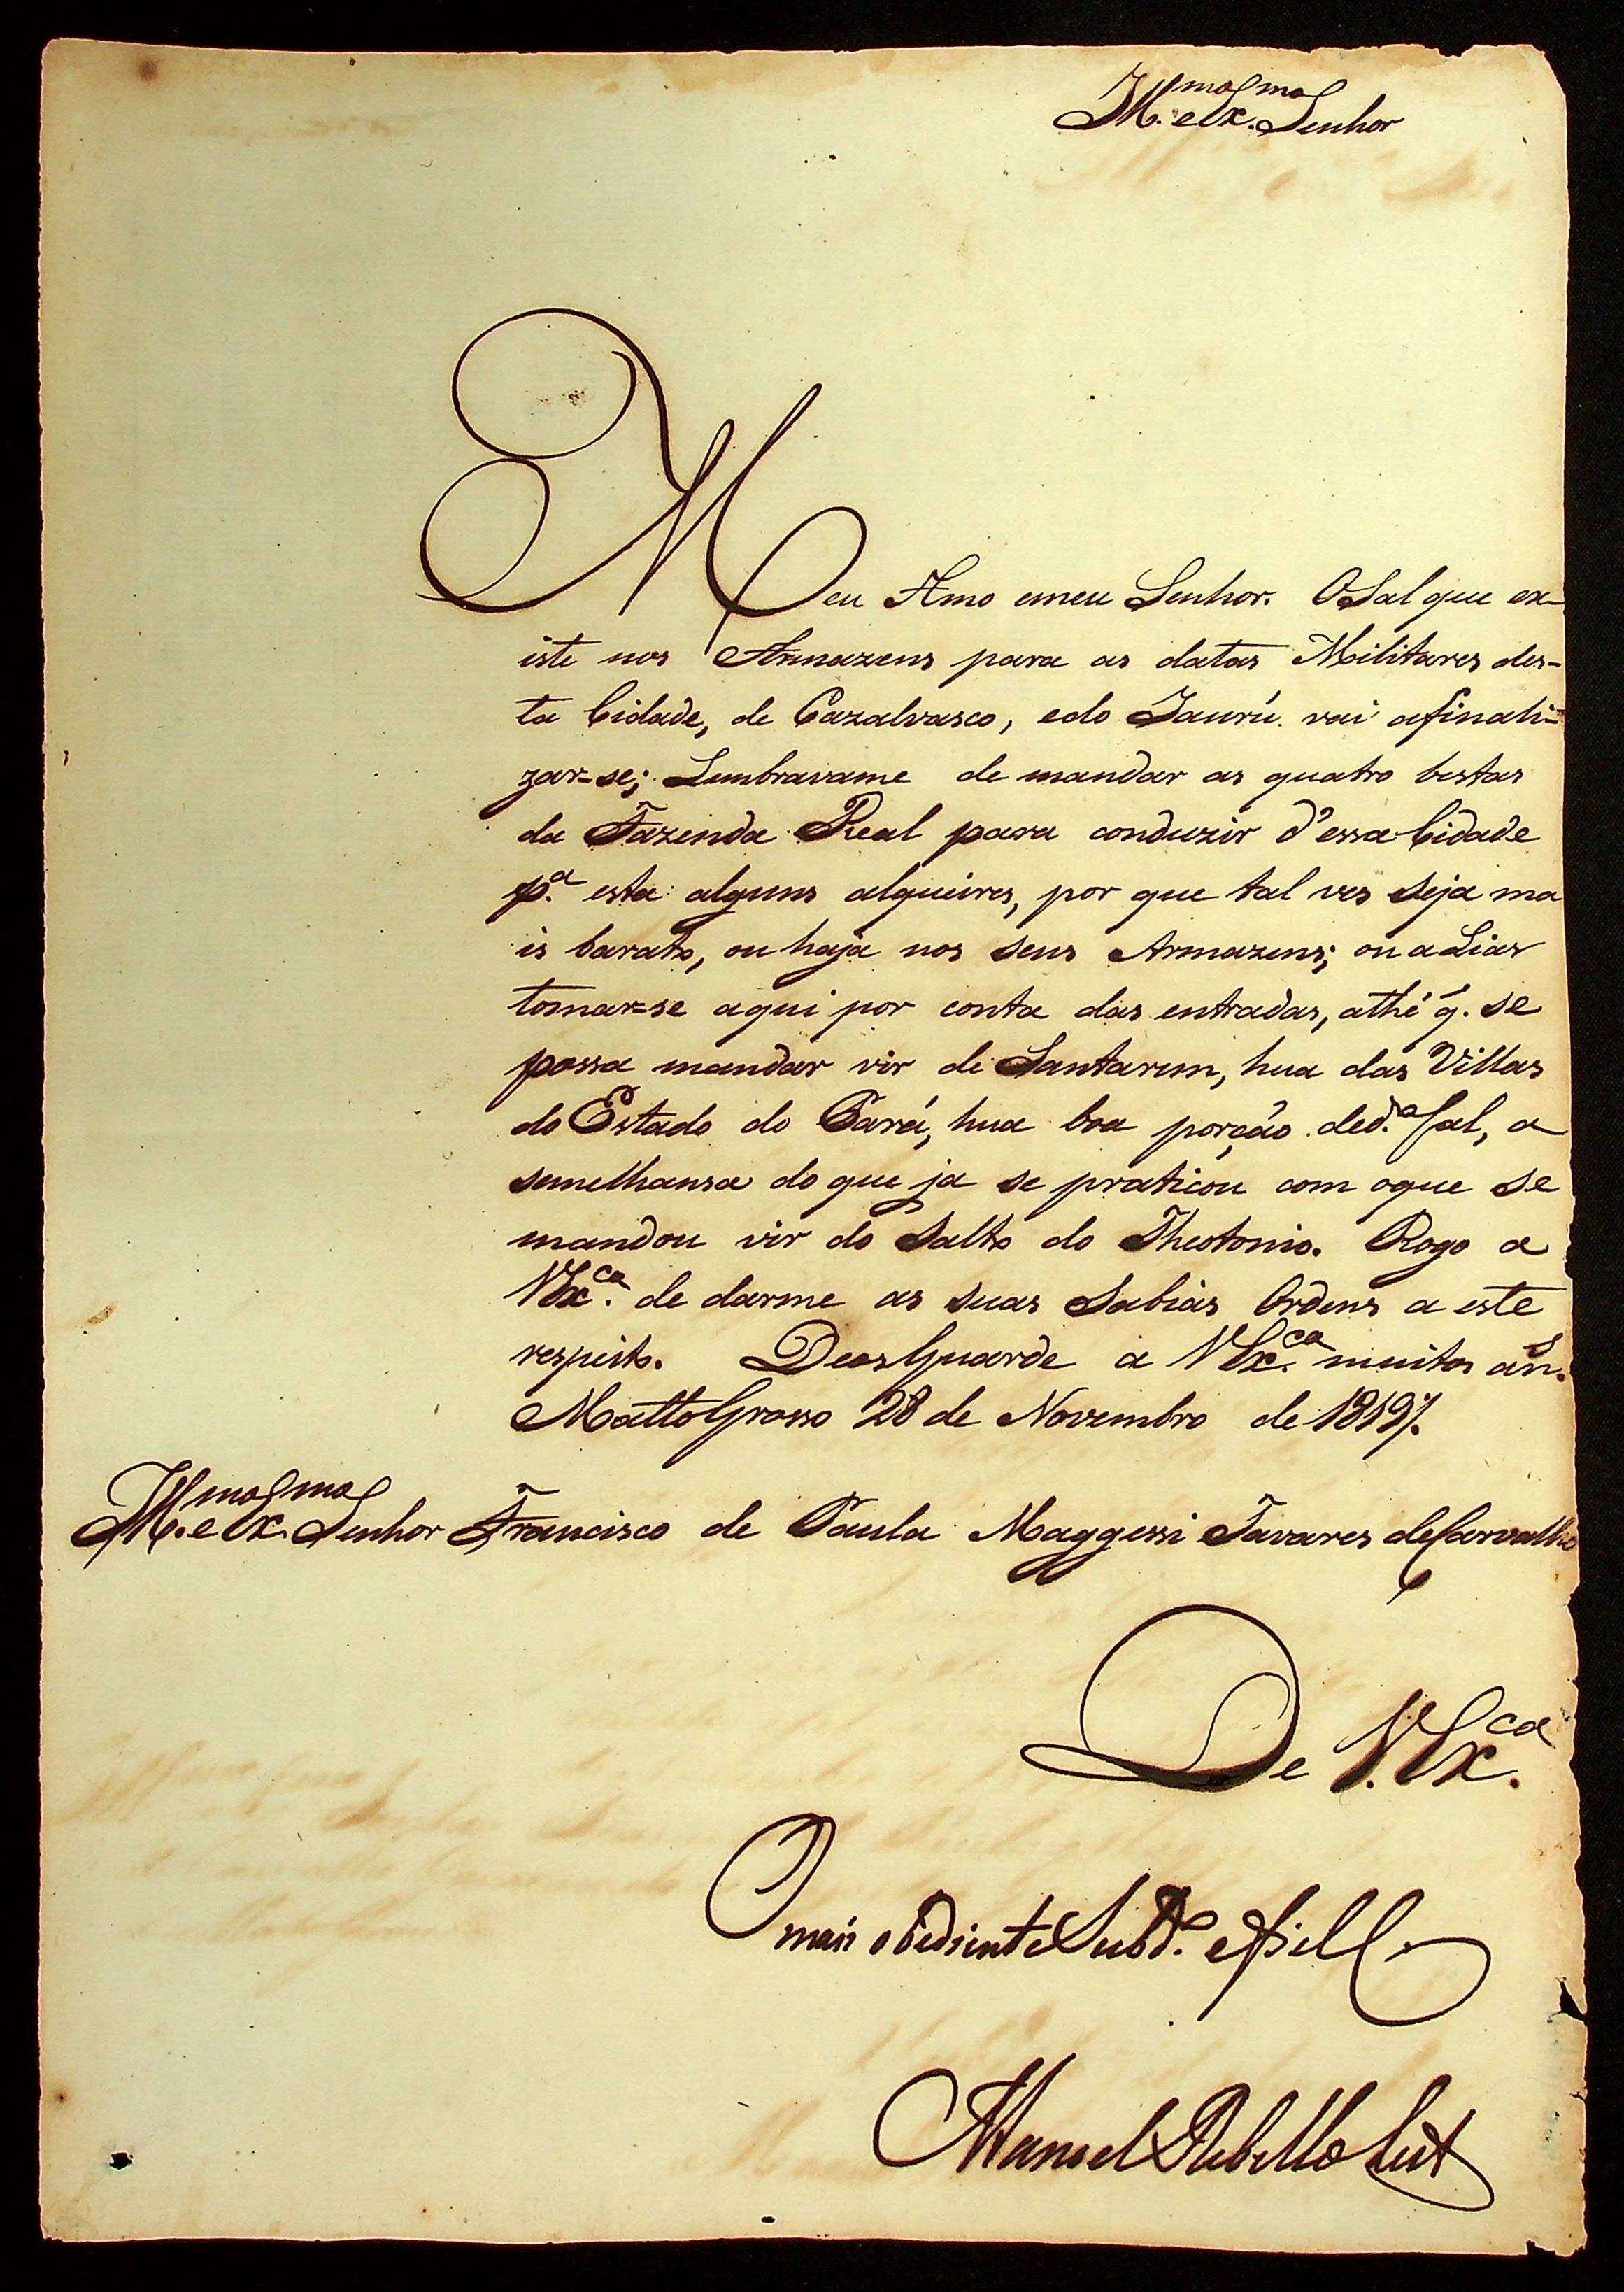 Ill.mo e Ex.mo Senhor
Meu Amo emeu Senhor. O Sal que ex-
iste nos Armazens para as datas Militares des-
ta Cidade, de Cazalvasco, edo Jaurú. vai afinali-
zar=se; Lembravame de mandar as quatro bestas
da Fazenda Real para conduzir d'essa Cidade
p.a esta alguns alqueires, por que tal ves seja ma
is barato, ou haja nos seus Armazens; ou aliás
tomar=se aqui por conta das entradas, athé q. se
possa mandar vir de Santarem, hua das Villas
do Estado do Pará, hua boa porção ded.o Sal, a
semelhansa do que ja se praticou com oque se
mandou vir do Salto do Theotonio. Rogo a
V Ex.ca de darme as suas Sabias Ordens a este
respeito. Deos Guarde a V Ex.ca muitos an.s
Matto Grosso 28 de Novembro de 1819,,
Ill.mo e Ex.mo Senhor Francisco de Paula Maggessi Tavares de Carvalho
De V. Ex.ca
O mais obediente Subd.o efiel
Manoel Rebello